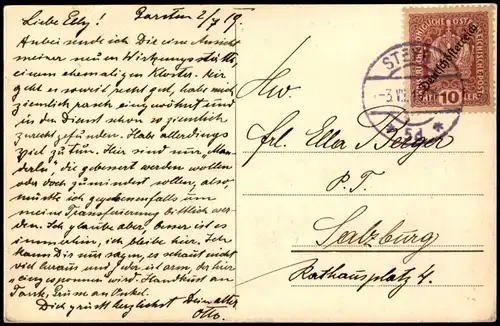 Liebe Elly! Garsten 2/7 19.
Anbei sende ich Dir eine Ansicht
meiner neuen Wirkungsstätte,
einem ehemaligen Kloster. Mir
geht es soweit recht gut, habe mich
ziemlich rasch eingewöhnt und
in den Dienst schon so ziemlich
zurecht gefunden. Habe allerdings
viel zu tun. Hier sind nur „
", die gebessert werden wollen
oder doch zumindest sollen, also,
müßte ich gegebenenfalls um
meine Transferierung bittlich wer-
den. Ich glaube aber, besser ist es
immerhin, ich bleibe hier. Ich
kann Dir nur sagen, es schaut nicht
viel heraus und jeder ist arm, der hier
„eingesponnen" wird. Handkuß an
Tante, Grüße an Onkel.
Dich grüßt herzlichst Dein alter
Otto.
DEUTSCHÖSTERREICH
HELLER 10
STEYR
-3.VII.
* 5d *
Hw.
Frl. Eller Berger
P. T.
Salzburg
Rathausplatz 4.